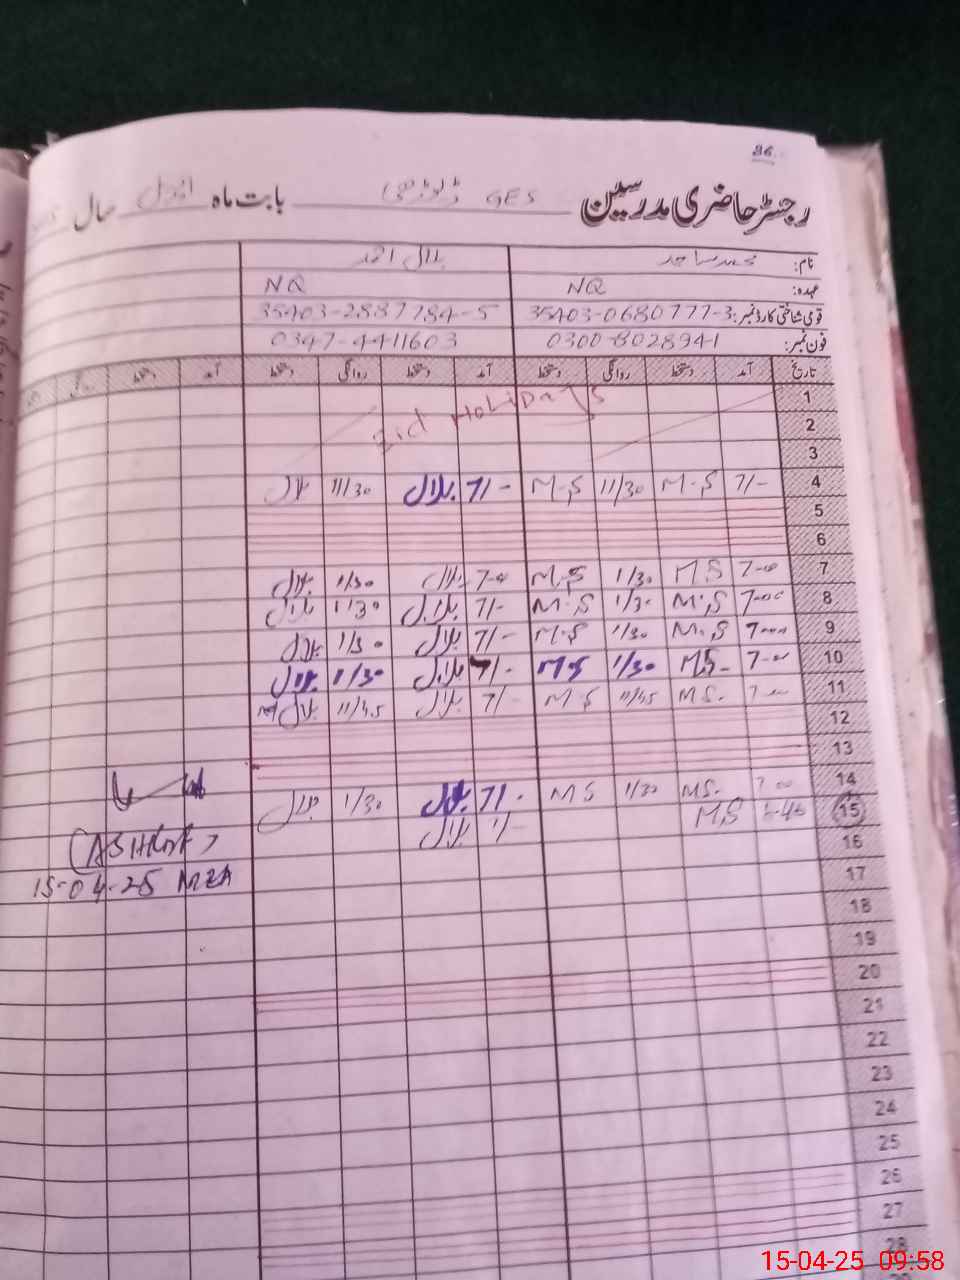 36
رجسٹر حاضری مدرسین GES ڈیوڑھی بابت ماہ اپریل سال
نام: محمد ساجد بلال احمد
عہدہ: NQ NQ
قومی شناختی کارڈ نمبر: 35403-0680777-3 35403-2887784-5
فون نمبر: 0300-8028941 0347-4411603
تاریخ آمد دستخط روانگی دستخط آمد دستخط روانگی دستخط آمد دستخط
1 Eid Holidays
2
3
4 7/- M.S 11/30 M.S 7/- بلال 11/30 بلال
5
6
7 7-00 M.S 1/30 M.S 7-0 بلال 1/30 بلال
8 7-00 M.S 1/30 M.S 7/- بلال 1/30 بلال
9 7-00 M.S 1/30 M.S 7/- بلال 1/30 بلال
10 7-00 M.S 1/30 M.S 7/- بلال 1/30 بلال
11 7-00 M.S. 11/45 M.S 7/- بلال 11/45 بلال
12
13
14 7-00 M.S. 1/30 M.S 7/- بلال 1/30 بلال
15 M.S بلال
16
(ASHRAF)
17
15-04-25 MEA
18
19
20
21
22
23
24
25
26
27
28
15-04-25 09:58